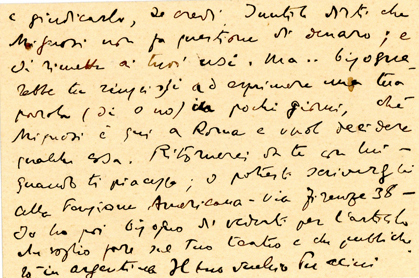 e giudicarlo, se credi. Inutile dirti che
Mignosi non fa questione di denaro; e
si rimette ai tuoi usi. Ma.. bisogne-
rebbe tu riuscissi ad esprimere una tua
parola (si o no) in pochi giorni, chè
Mignosi è qui a Roma e vuol decidere
qualche cosa. Ritornerei da te con lui -
quando ti piacesse; o potresti scrivergli
alla Pensione Americana - via Firenze 38 -
Io ho poi bisogno di vederti per l'articolo
che voglio fare sul tuo teatro e che pubbliche-
rò in argentina Il tuo vecchio